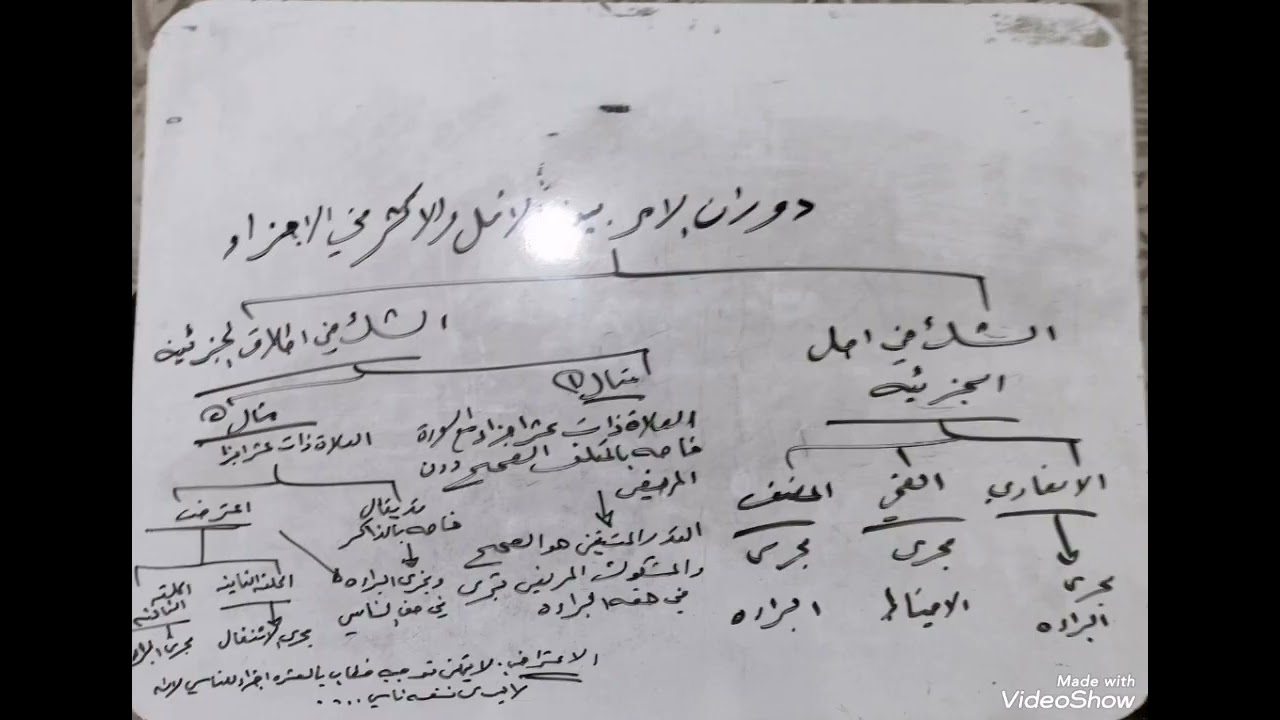 دوران الامر بين الاقل والاكثر في الاجزاء
الشك في اصل
الجزئية
الانصاري
مجرى
البراءه
القمي
مجرى
الاحتياط
المصنف
مجرى
البراءه
الشك في اطلاق الجزئية
مثال ①
الصلاة ذات عشر اجزاء مع السورة
خاصه بالمكلف الصحيح دون
المريض
القدر المتيقن هو الصحيح
والمشكوك المريض فتجري
في حقه البراءه
مثال
الصلاة ذات عشر اجزاء
قد يقال
خاصه بالذاكر
وتجري البراءه
في حق الناسي
اعترض
الحالة الثانيه
مجرى الاشتغال
الحالة
الثالثه
مجرى البراءه
الاعتراض: لا يمكن توجيه خطاب بالعشره اجزاء للناسي لانه
لا يرى نفسه ناسي ....
Made with
VideoShow